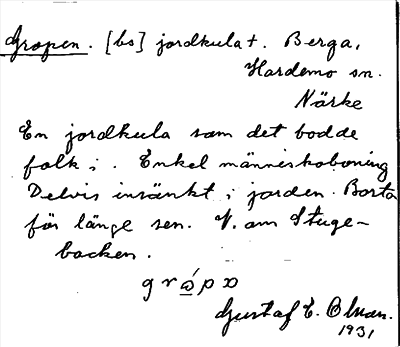 Gropen. [bs] jordkula +. Berga,
Hardemo sn.
Närke
En jordkula som det bodde
folk i. Enkel människoboning
Delvis insänkt i jorden. Borta
för länge sen. V. om Stuge-
backen.
Gustaf E. Olsson.
1931